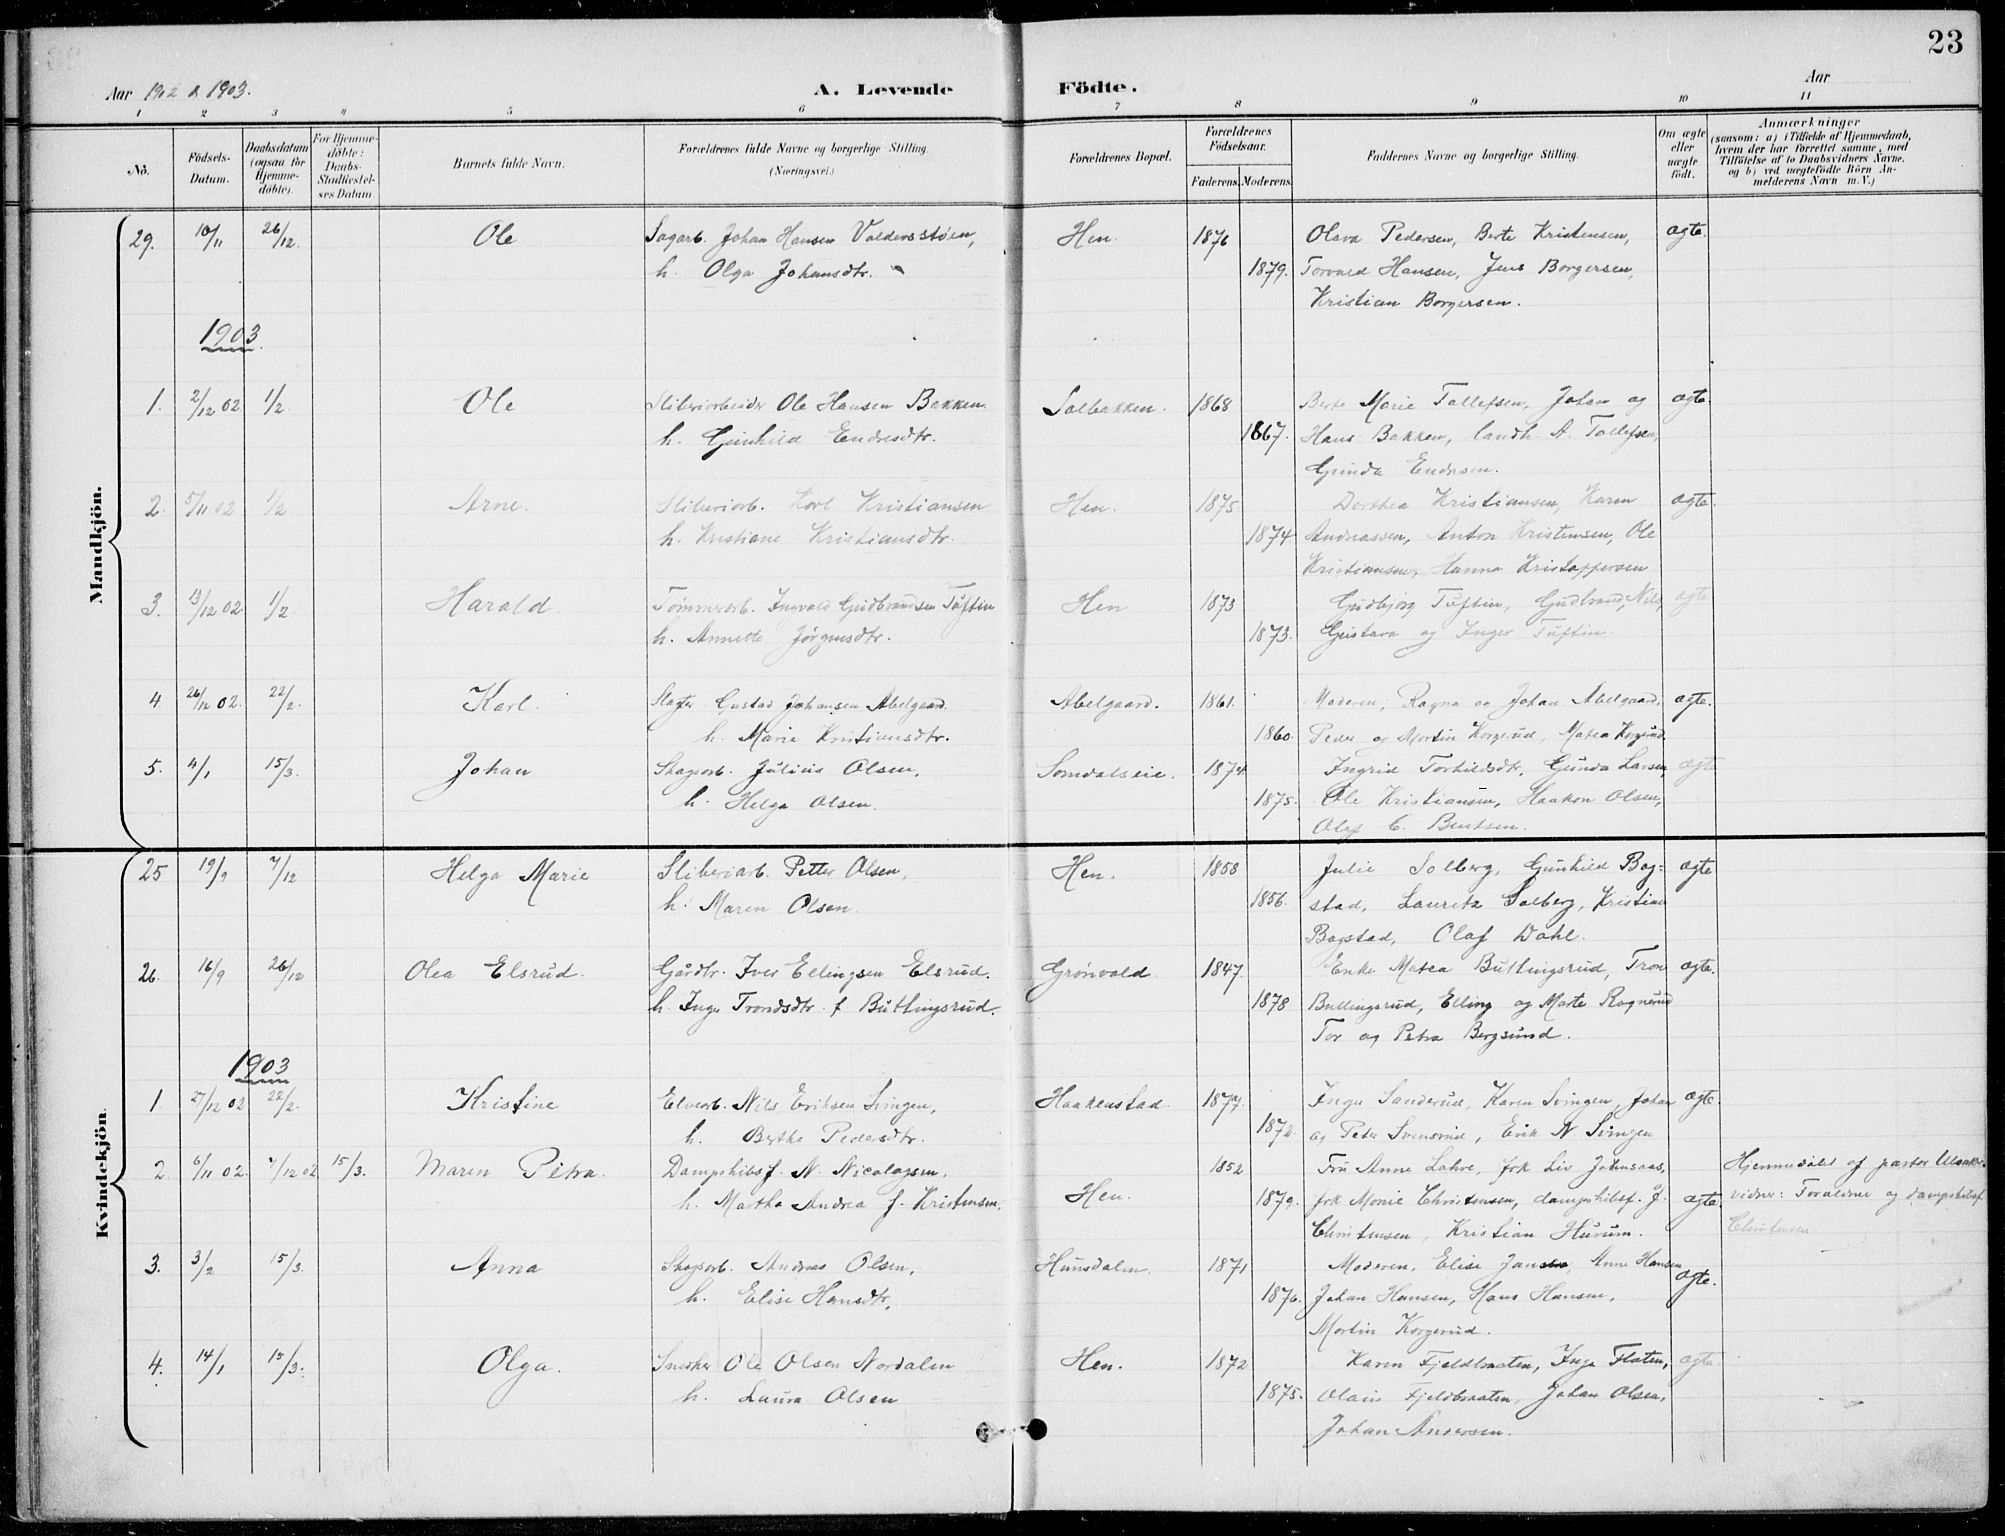 23
Aar 1902 & 1903.
A. Levende Födte.
Aar
1 2 3 4 5 6 7 8 9 10 11
No.
Födsels-Datum.
Daabsdatum (ogsaa for Hjemme-döbte).
For Hjemme-döbte: Daabs-Stadfæstel-ses Datum
Barnets fulde Navn.
Forældrenes fulde Navne og borgerlige Stilling. (Næringsvei.)
Forældrenes Bopæl.
Forældrenes Födselsaar.
Faderens. Moderens.
Faddernes Navne og borgerlige Stilling.
Om ægte eller uægte födt.
Anmærkninger
(saasom: a) i Tilfælde af Hjemmedaab,
hvem der har forrettet samme, med
Tilföielse af to Daabsvidners Navne.
og b) ved uægtefödte Börn An-
melderens Navn m. V.)
Mandkjön.
29. 10/11 26/12. Ole Sagarb. Johan Hansen Valdersstøen, Hen. 1876 Olava Pedersen, Berte Kristensen, ægte.
h. Olga Johansdtr. 1879. Torvald Hansen, Jens Borgersen,
Kristian Borgersen.
1903.
1. 2/12 02 1/2. Ole Sliberiarbeider Ole Hansen Bakken. Solbakken. 1868 Berte Marie Tollefsen, Johan og ægte.
h. Gunhild Endresdtr. 1867. Hans Bakken, landh. A. Tollefsen,
Gunda Endresen.
2. 5/11 02 1/2 Arne. Sliberiarb. Karl Kristiansen Hen. 1875 Dorthea Kristiansen, Karen ægte.
h. Kristiane Kristiansdtr. 1874. Andreassen, Anton Kristensen, Ole
Kristiansen, Hanna Kristoffersen
3. 13/12 02. 1/2. Harald Tømmerarb. Ingvald Gudbrandsen Tuftin Hen 1873 Gudbjørg Tuftin, Gudbrand, Nils, ægte
h. Annette Jørgensdtr. 1873. Gustava og Inger Tuftin.
4. 26/12 02. 22/2. Karl. Slagter Gustav Johansen Abelgaard. Abelgaard. 1861. Moderen, Ragna og Johan Abelgaard, ægte.
h. Marie Kristiansdtr. 1860. Peder og Martin Korgerud, Matea Korgerud
5. 4/1 15/3. Johan Skogsarb. Julius Olsen, Somdalseie. 1874 Ingrid Torkildsdtr, Gunda Larsen ægte
h. Helga Olsen. 1875. Ole Kristiansen, Haakon Olsen,
Olaf C. Bentsen.
Kvindekjön.
25 19/9 7/12 Helga Marie Sliberiarb. Petter Olsen, Hen. 1858 Julie Solberg, Gunhild Bag- ægte
h. Maren Olsen. 1856. stad, Lauritz Solberg, Kristian
Bagstad, Olaf Dahl.
26. 16/9 26/12 Olea Elsrud. Gårdbr. Iver Ellingsen Elsrud. Grønvold 1847. Enke Matea Buttingsrud, Tron ægte.
h. Inger Trondsdtr. f Buttingsrud. 1878 Buttingsrud, Elling og Marte Ragnerud
Tor og Petra Bergsund.
1903
1. 27/12 02 22/2. Kristine Elvearb. Nils Eriksen Svingen, Haakenstad. 1877. Inger Sanderud, Karen Svingen, Johan ægte.
h. Berthe Pedersdtr. 1872. og Peter Svensrud, Erik N Svingen
2. 6/11 02. 7/12 02 15/3. Maren Petra. Dampskibsf. N. Nicolaysen, Hen. 1852 Fru Anne Lahre, frk Liv Johnsaas, Hjemmedøbt af pastor
h. Martha Andrea f. Kristensen. 1879. frk Monie Christensen, dampskibsf. J. ægte. vidner: Forældrene og dampskibsf
Christensen, Kristian Hurum. Christensen.
3. 3/2 15/3. Anna Skogsarb. Andreas Olsen, Hunsdalen. 1871 Moderen, Elise Jansen, Anne Hansen ægte.
h. Elise Hansdtr. 1876. Johan Hansen, Hans Hansen,
Martin Korgerud.
4. 14/1 15/3. Olga. Snedker Ole Olsen Nordalen Hen. 1872 Karen Fjeldbraaten, Inga Flaten, ægte
h. Laura Olsen 1875. Olaus Fjeldbraaten, Johan Olsen,
Johan Andersen.